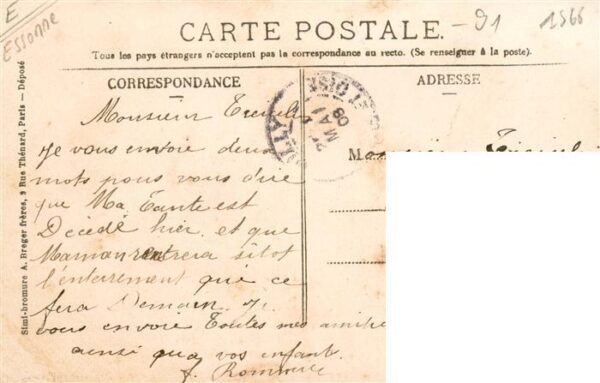 E
Essonne
CARTE POSTALE. - 91
1566
Tous les pays étrangers n'acceptent pas la correspondance au recto. (Se renseigner à la poste).
CORRESPONDANCE
ADRESSE
Simi-bromure A. Breger frères, 9 Rue Thénard, Paris — Déposé
Monsieur
Je vous envoie deux
mots pour vous dire
que Ma Tante est
Décédé hier et que
Maman rentrera sitot
l'enterement que ce
sera Demain. Je
vous envoie Toutes mes amitié
ainsi qua vos enfant.
MAI
08
OISE